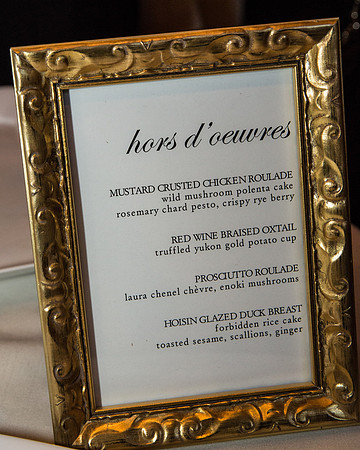 hors d'oeuvres
MUSTARD CRUSTED CHICKEN ROULADE
wild mushroom polenta cake
rosemary chard pesto, crispy rye berry
RED WINE BRAISED OXTAIL
truffled yukon gold potato cup
PROSCIUTTO ROULADE
laura chenel chèvre, enoki mushrooms
HOISIN GLAZED DUCK BREAST
forbidden rice cake
toasted sesame, scallions, ginger